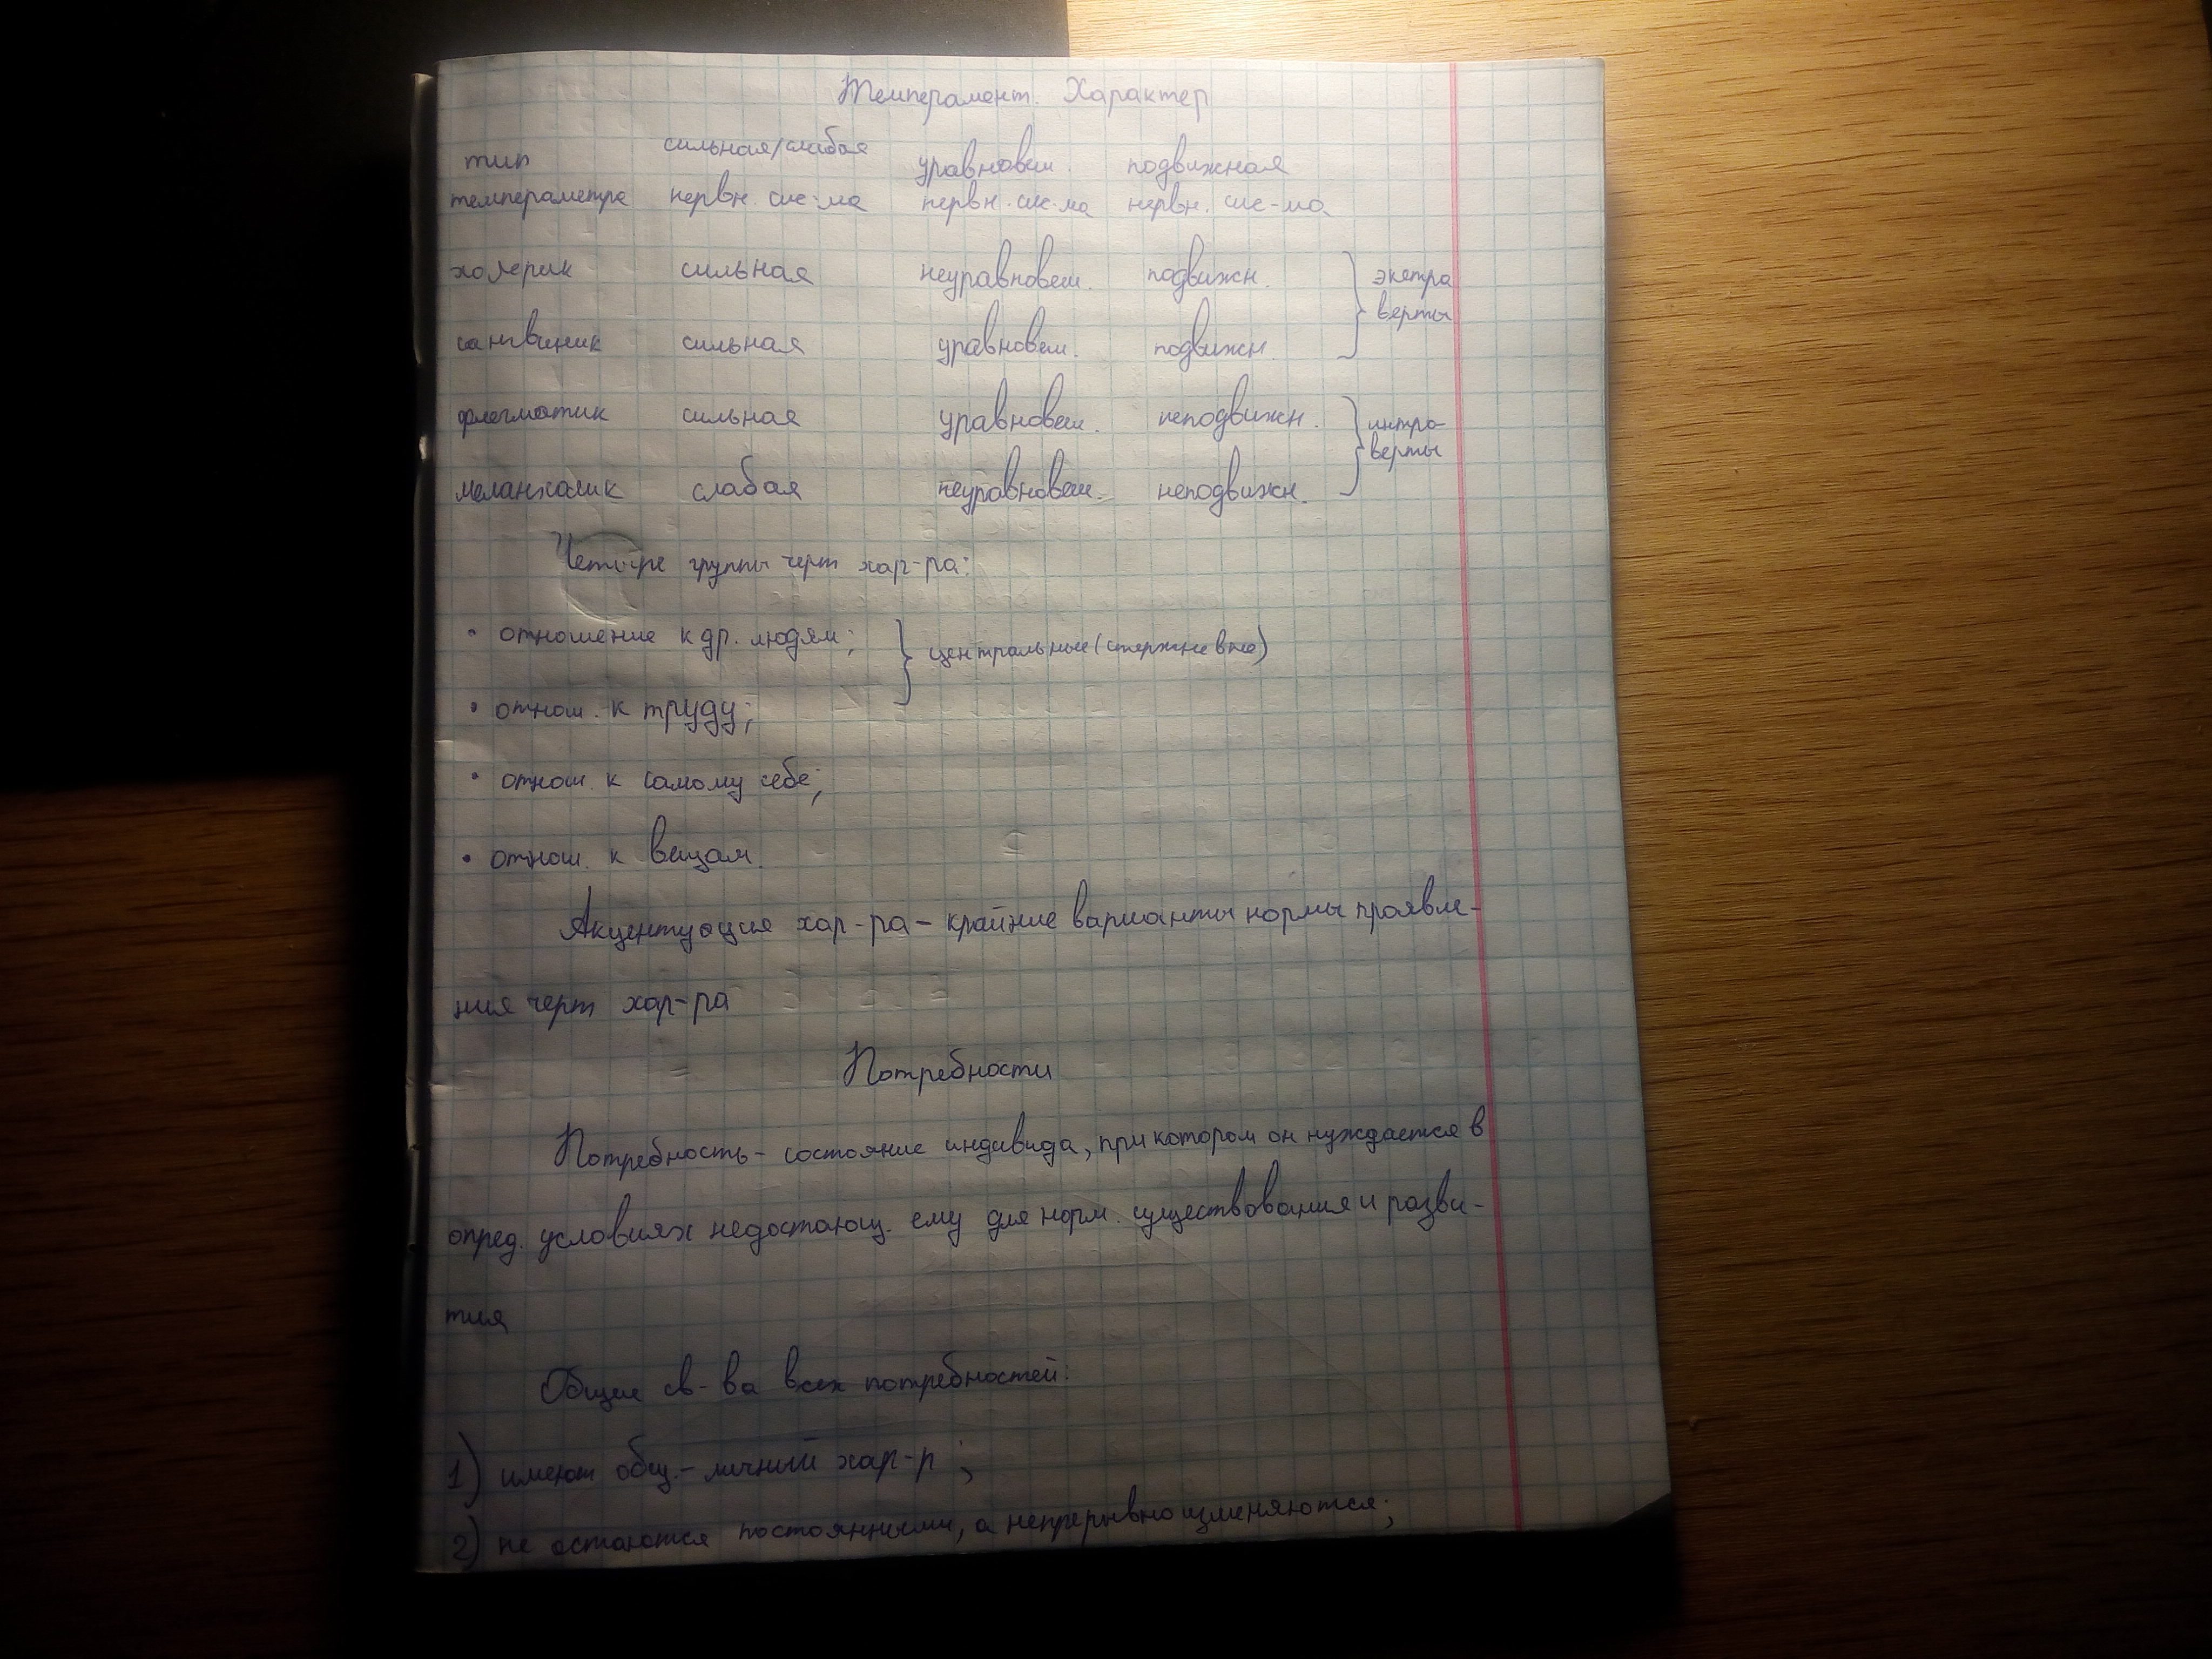 Темперамент. Характер
тип сильная/слабая уравновеш. подвижная
темпераметра нервн. сис-ма нервн. сис-ма нервн. сис-ма
холерик сильная неуравновеш. подвижн. } экстра
верты
сангвиник сильная уравновеш. подвижн.
флегматик сильная уравновеш. неподвижн. } интро-
верты
меланхолик слабая неуравновеш. неподвижн.
Четыре группы черт хар-ра:
• отношение к др. людям; } центральные (стержневые)
• отнош. к труду;
• отнош. к самому себе;
• отнош. к вещам.
Акцентуация хар-ра – крайние варианты нормы проявле-
ния черт хар-ра
Потребности
Потребность – состояние индивида, при котором он нуждается в
опред. условиях недостающ. ему для норм. существования и разви-
тия
Общие св-ва всех потребностей:
1) имеют общ.-личный хар-р ;
2) не остаются постоянными, а непрерывно изменяются;